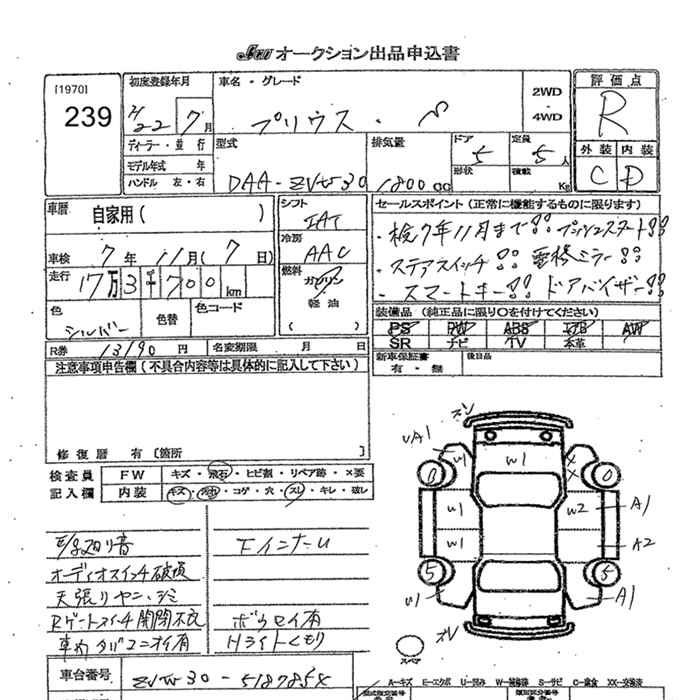 オークション出品申込書
[1970]
239
初度登録年月
H22 7月
車名・グレード
プリウス・S
2WD
・
4WD
評価点
R
ディーラー・並行
モデル年式 年
ハンドル 左・右
型式
DAA-ZVW30
排気量
1800 cc
ドア
5
形状
定員
5人
積載
Kg
外装 内装
C D
車歴
自家用( )
車検 7年 11月( 7日)
走行 17万3千700km
色
シルバー
色替
色コード
シフト
IAT
冷房
AAC
燃料
ガソリン
軽油
( )
セールスポイント (正常に機能するものに限ります)
・検7年11月まで!! プッシュスタート!!
・ステアスイッチ!! 電格ミラー!!
・スマートキー!! ドアバイザー!!
装備品 (純正品に限り○を付けてください)
PS PW ABS エアB AW
SR ナビ TV 本革
R券 13190円
名変期限 月 日
新車保証書
有・無
後日品
注意事項申告欄(不具合内容等は具体的に記入して下さい)
修復歴 有〔箇所 〕
検査員
記入欄
FW キズ・飛石・ヒビ割・リペア跡・×要
内装 キズ・汚れ・コゲ・穴・スレ・キレ・破レ
E/g廻り音
オーディオスイッチ破損
天張りヤニ、シミ
Rゲートスイッチ開閉不良
車内タバコニオイ有
下インナーU
ボウセイ有
Hライトくもり
ズレ
UA1
W1
W1
0
0
W1
W2
A1
W1
A2
5
5
U1
A1
ズレ
スペア
A-キズ E-エクボ U-凹み W-補修跡 S-サビ C-腐食 XX-交換済
車台番号
ZVW30-5187858
型式指定番号
類別区分番号